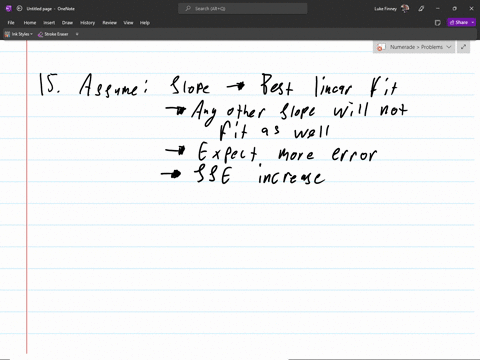 Untitled page - OneNote
Search (Alt+Q)
Luke Finney
File Home Insert Draw History Review View Help
Share
Ink Styles Stroke Eraser
Numerade > Problems
15. Assume: Slope → Best linear fit
→ Any other slope will not
fit as well
→ Expect more error
→ SSE increase